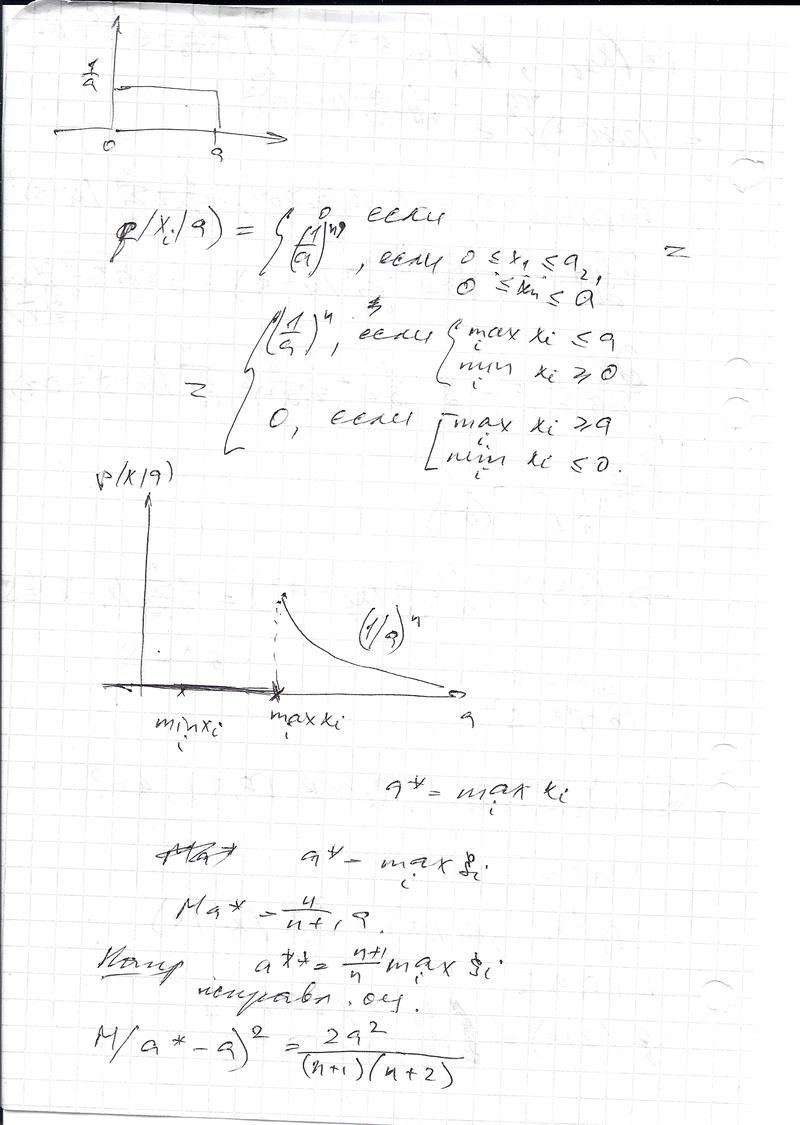 1/a
0 a
p(x_i/a) = { 0 если
(1/a)^n, если 0 ≤ x_1 ≤ a, =
0 ≤ x_n ≤ a
= { (1/a)^n, если { max_i x_i ≤ a
min_i x_i ≥ 0
0, если [ max_i x_i ≥ a
min_i x_i ≤ 0.
p(x/a)
(1/a)^n
min_i x_i max_i x_i a
a* = max_i x_i
a* = max_i ξ_i
Ma* = n/(n+1) a.
a** = (n+1)/n max_i ξ_i
исправл. оц.
M(a* - a)^2 = 2a^2/((n+1)(n+2))